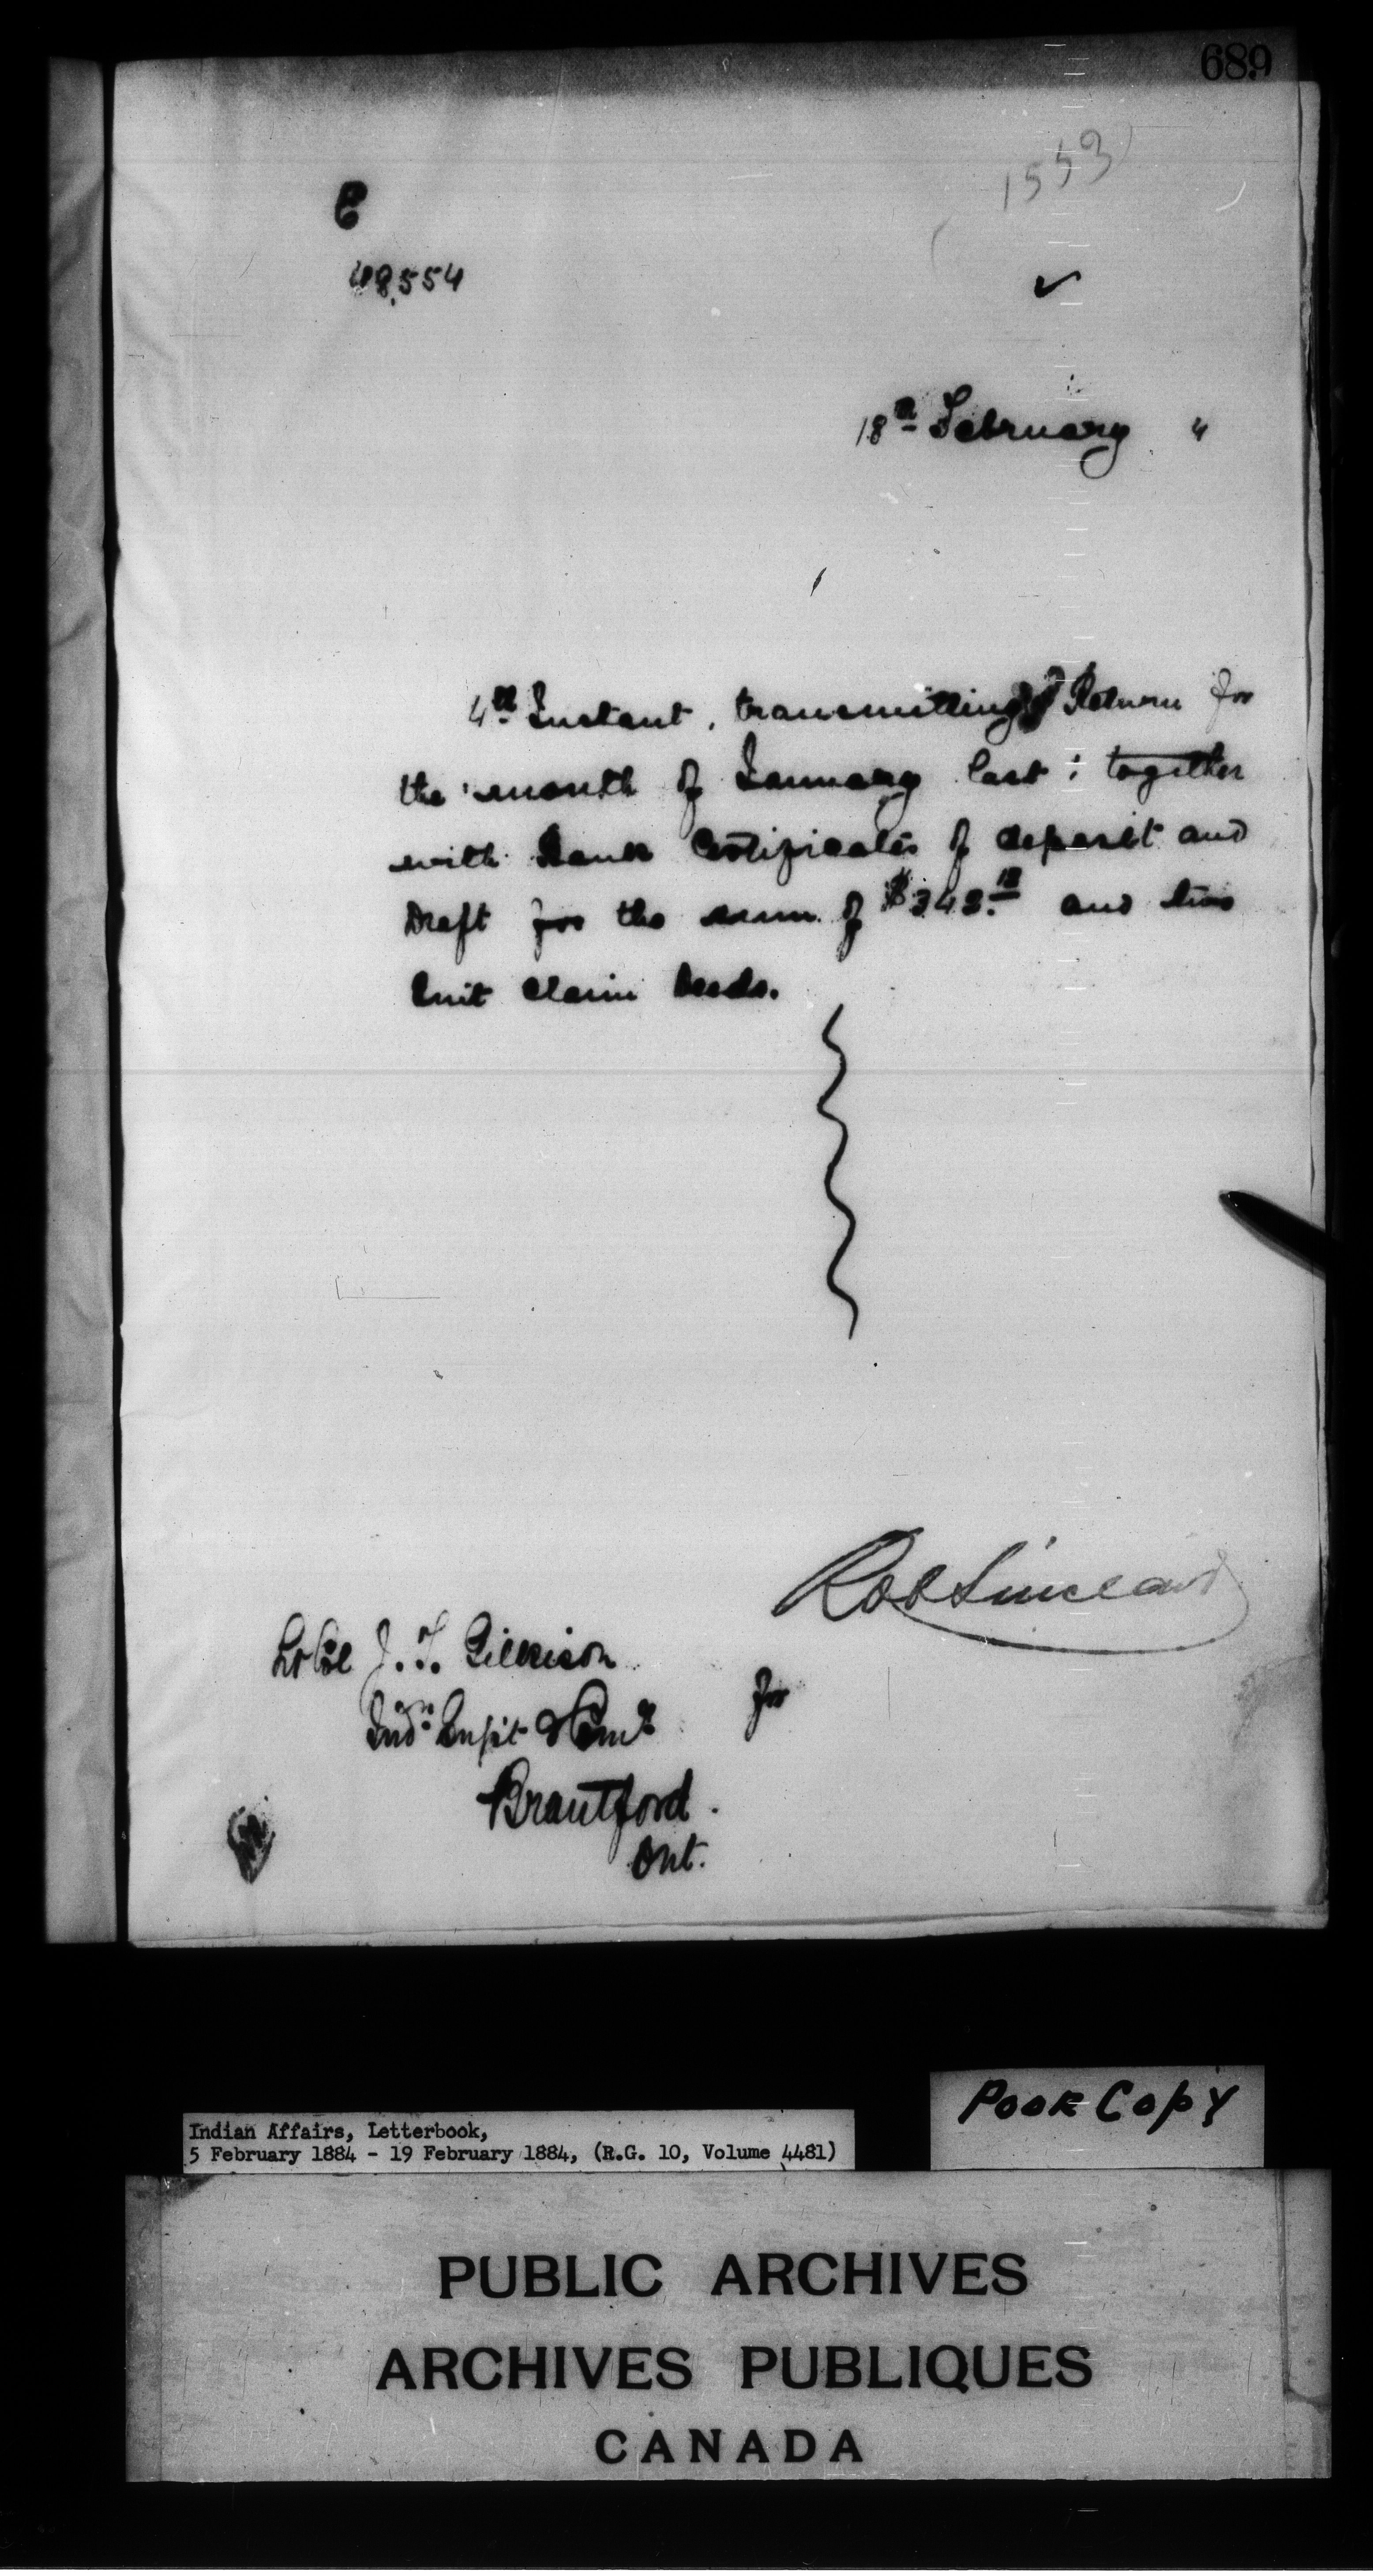 689
1553
48,554
18th February 4
4th Instant, transmitting Return for
the month of January last; together
with Bank Certificates of deposit and
Draft for the sum of $348.18 and two
Quit Claim Deeds.
Rob Sinclair
Lt Col J. T. Gilkison
for
Indn Supt &
Brantford.
Ont.
Poor Copy
Indian Affairs, Letterbook,
5 February 1884 - 19 February 1884, (R.G. 10, Volume 4481)
PUBLIC ARCHIVES
ARCHIVES PUBLIQUES
CANADA